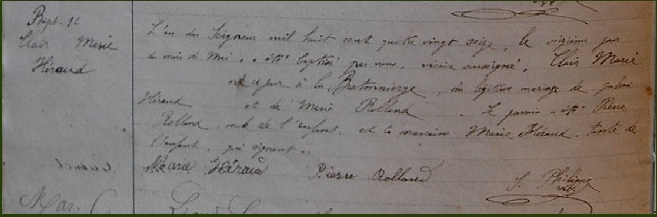 Bapt. 12
Clair Marie
Héraud
L'an du Seigneur mil huit cent quatre vingt seize, le sixième jour
du mois de Mai, a été baptisé par nous, vicaire soussigné, Clair Marie
né ce jour à la Bretonnière, du légitime mariage de
Héraud et de Marie Rolland. Le parrain a été Pierre
Rolland, oncle de l'enfant, et la marraine Marie Héraud, tante de
l'enfant, qui signent
Marie Héraud Pierre Rolland J. Philippe
Mar.